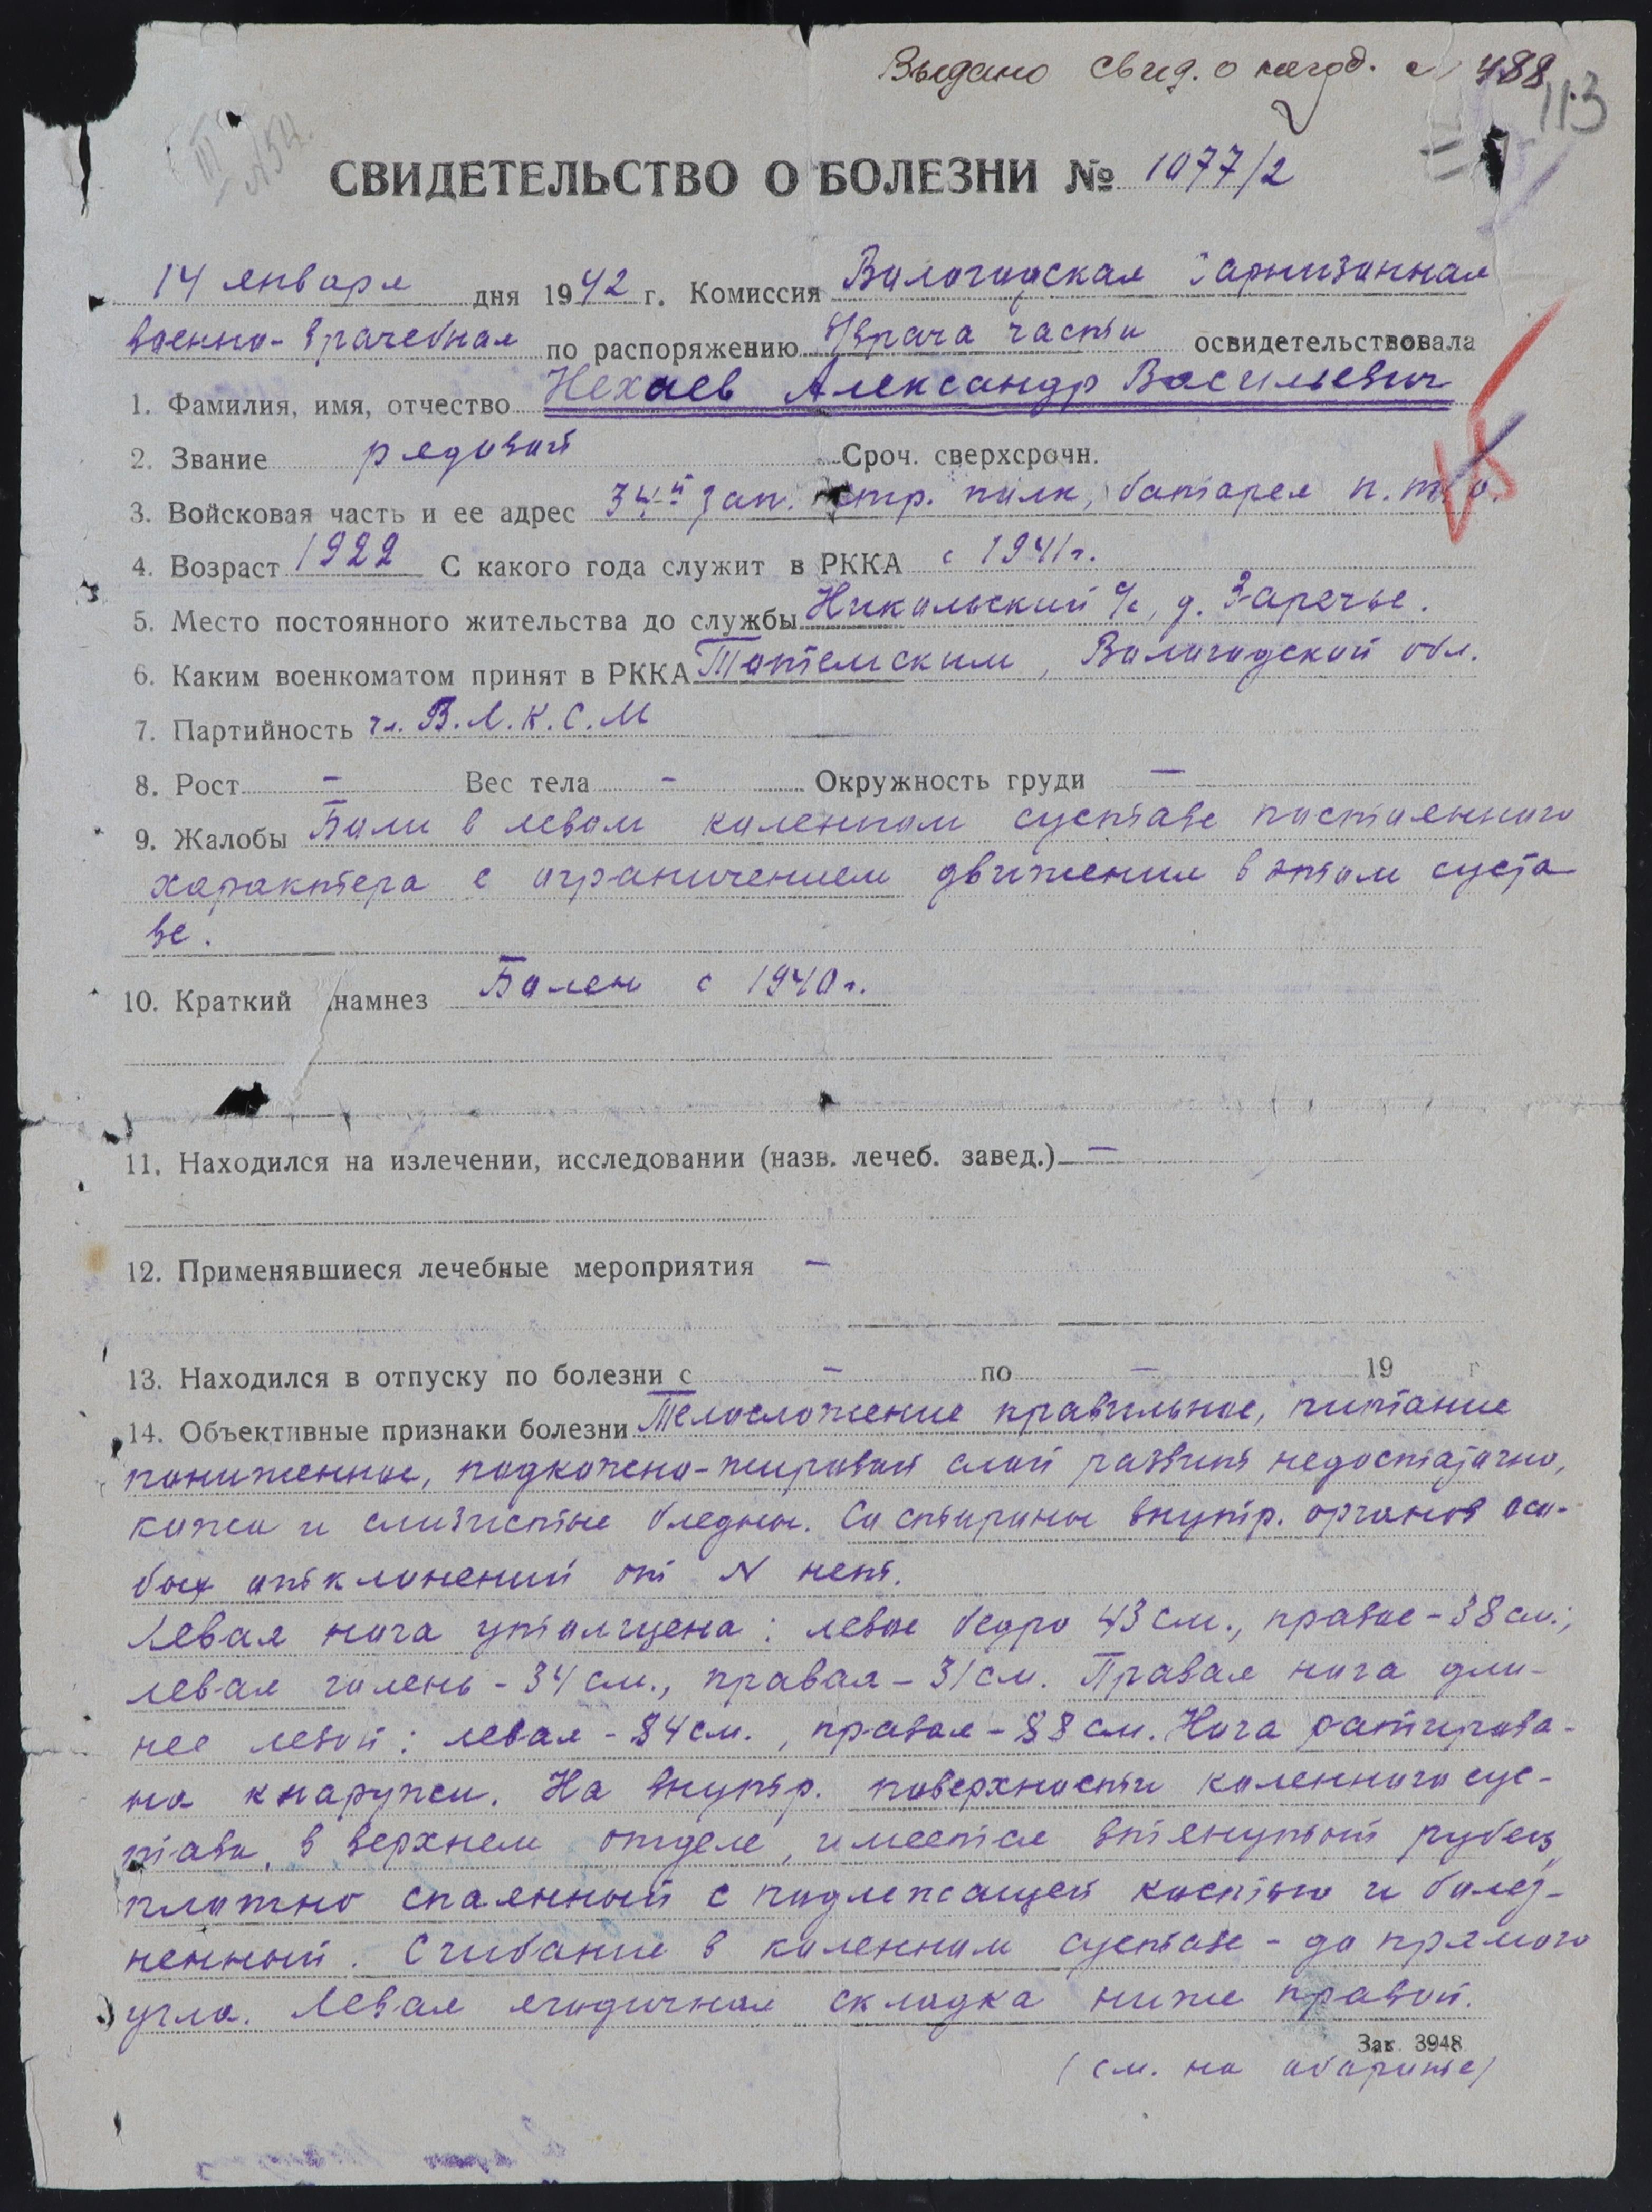 Выдано свид. о негод. № 488
113
III
№ 54.
СВИДЕТЕЛЬСТВО О БОЛЕЗНИ № 1077/2
14 января дня 1942 г. Комиссия Вологодская Гарнизонная
военно-врачебная по распоряжению врача части освидетельствовала
1. Фамилия, имя, отчество Нехаев Александр Васильевич
2. Звание рядовой Сроч. сверхсрочн.
3. Войсковая часть и ее адрес 34й зап. стр. полк, батарея п.т.о.
4. Возраст 1922 С какого года служит в РККА с 1941 г.
5. Место постоянного жительства до службы Никольский с/с, д. Заречье.
6. Каким военкоматом принят в РККА Тотемским, Вологодской обл.
7. Партийность чл. В.Л.К.С.М
8. Рост – Вес тела – Окружность груди –
9. Жалобы Боли в левом коленном суставе постоянного
характера с ограничением движения в этом суста
ве.
10. Краткий намнез Болен с 1940 г.
11. Находился на излечении, исследовании (назв. лечеб. завед.) –
12. Применявшиеся лечебные мероприятия –
13. Находился в отпуску по болезни с – по – 19 г
14. Объективные признаки болезни Телосложение правильное, питание
пониженное, подкожено-жировой слой развит недостаточно,
кожа и слизистые бледны. Со стороны внутр. органов осо-
бых отклонений от N нет.
Левая нога утолщена: левое бедро 43 см., правое – 38 см.;
левая голень – 34 см., правая – 31 см. Правая нога дли-
нее левой: левая – 84 см., правая – 88 см. Нога ротирова-
на кнаружи. На внутр. поверхности коленного сус-
тава, в верхнем отделе, имеется втянутый рубец
плотно спаянный с подлежащей костью и болез-
ненный. Сгибание в коленном суставе – до прямого
угла. Левая ягодичная складка ниже правой.
Зак. 3948
(см. на обороте)